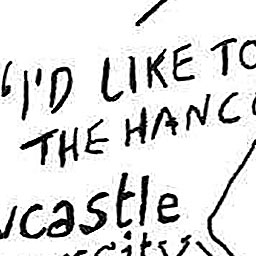 "I'D LIKE TO
THE HANC
vcastle